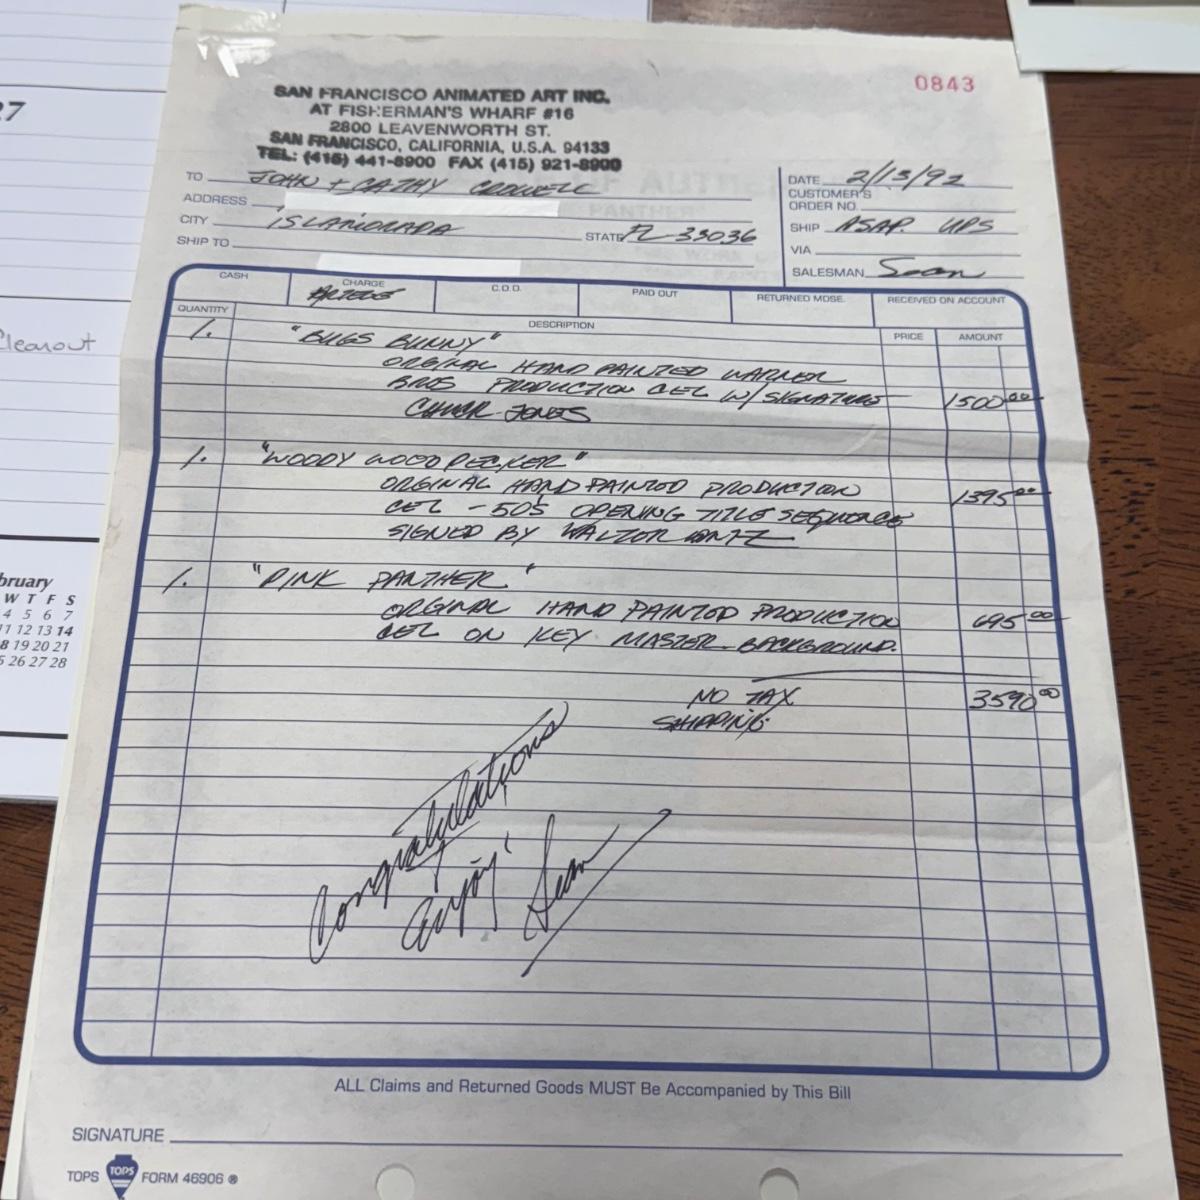 27
Cleanout
bruary
W T F S
4 5 6 7
11 12 13 14
8 19 20 21
5 26 27 28
0843
SAN FRANCISCO ANIMATED ART INC.
AT FISHERMAN'S WHARF #16
2800 LEAVENWORTH ST.
SAN FRANCISCO, CALIFORNIA, U.S.A. 94133
TEL: (415) 441-8900 FAX (415) 921-8900
TO JOHN + CATHY CROWELL
ADDRESS
CITY ISLAMORADA STATE FL 33036
SHIP TO
DATE 2/13/92
CUSTOMER'S
ORDER NO.
SHIP ASAP. UPS
VIA
SALESMAN Sean
CASH CHARGE C.O.D. PAID OUT RETURNED MDSE. RECEIVED ON ACCOUNT
QUANTITY DESCRIPTION PRICE AMOUNT
1. "BUGS BUNNY"
ORGINAL HAND PAINTED WARNER
BROS PRODUCTION CEL W/SIGNATURE 1500.00
CHUCK JONES
1. "WOODY WOODPECKER"
ORGINAL HAND PAINTED PRODUCTION 1395.00
CEL - 50S OPENING TITLE SEQUENCE
SIGNED BY WALTER LANTZ
1. "PINK PANTHER"
ORGINAL HAND PAINTED PRODUCTION 695.00
CEL ON KEY MASTER BACKGROUND.
NO TAX 3590.00
SHIPPING
Congratulations
enjoy!
Sean
ALL Claims and Returned Goods MUST Be Accompanied by This Bill
SIGNATURE
TOPS TOPS FORM 46906 ®